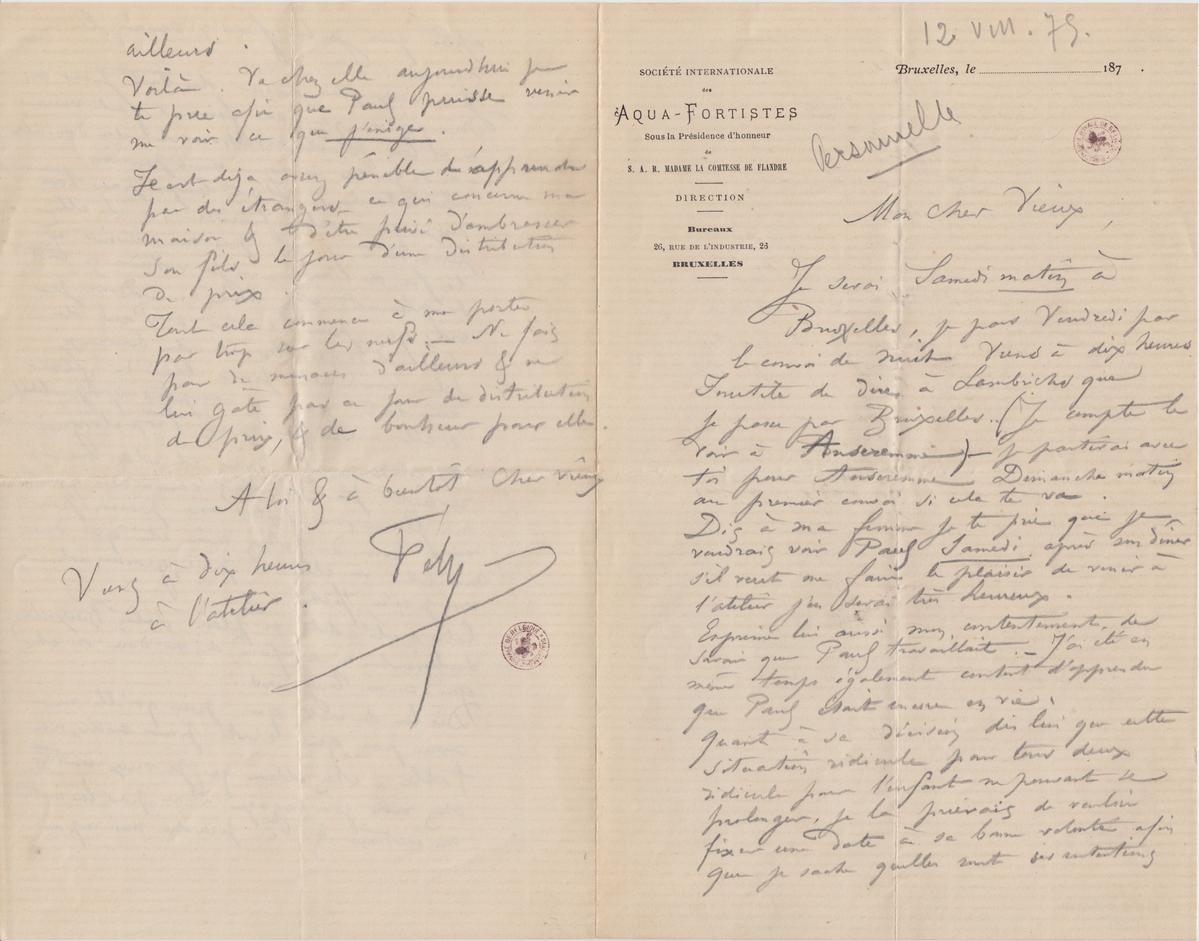 12 VIII. 75.
SOCIÉTÉ INTERNATIONALE
des
AQUA-FORTISTES
Sous la Présidence d'honneur
de
S. A. R. MADAME LA COMTESSE DE FLANDRE
DIRECTION
Bureaux
26, RUE DE L'INDUSTRIE, 26
BRUXELLES
Bruxelles, le 187 .
Personnelle
Mon cher Vieux,
Je serai Samedi matin à
Bruxelles, je pars Vendredi par
le convoi de nuit Viens à dix heures
Inutile de dire à Lambrichs que
je passe par Bruxelles. (Je compte le
voir à Anseremme) – je partirai avec
toi pour Anseremme Dimanche matin
au premier convoi si cela te va.
Dis à ma femme je te prie que je
voudrais voir Paul Samedi après son dîner
s'il veut me faire le plaisir de venir à
l'atelier j'en serai très heureux.
Exprime lui aussi mon contentement de
savoir que Paul travaillait. – J'ai été en
même temps également content d'apprendre
que Paul était encore en vie.
Quant à sa décision dis lui que cette
situation ridicule pour tous deux
ridicule pour l'enfant ne pouvant se
prolonger, je la prierais de vouloir
fixer une date à sa bonne volonté afin
que je sache quelles sont ses intentions
ailleurs.
Voilà. Va chez elle aujourd'hui je
te prie afin que Paul puisse venir
me voir ce que j'exige.
Il est déjà assez pénible d'apprendre
par des étrangers ce qui concerne ma
maison & d'être privé d'embrasser
son fils le jour d'une distribution
de prix.
Tout cela commence à me porter
par trop sur les nerfs. – Ne fais
pas de menaces d'ailleurs & ne
lui gâte pas ce jour de distribution
de prix, & de bonheur pour elle
A toi & à bientôt cher vieux
Fély
Viens à dix heures
à l'atelier.